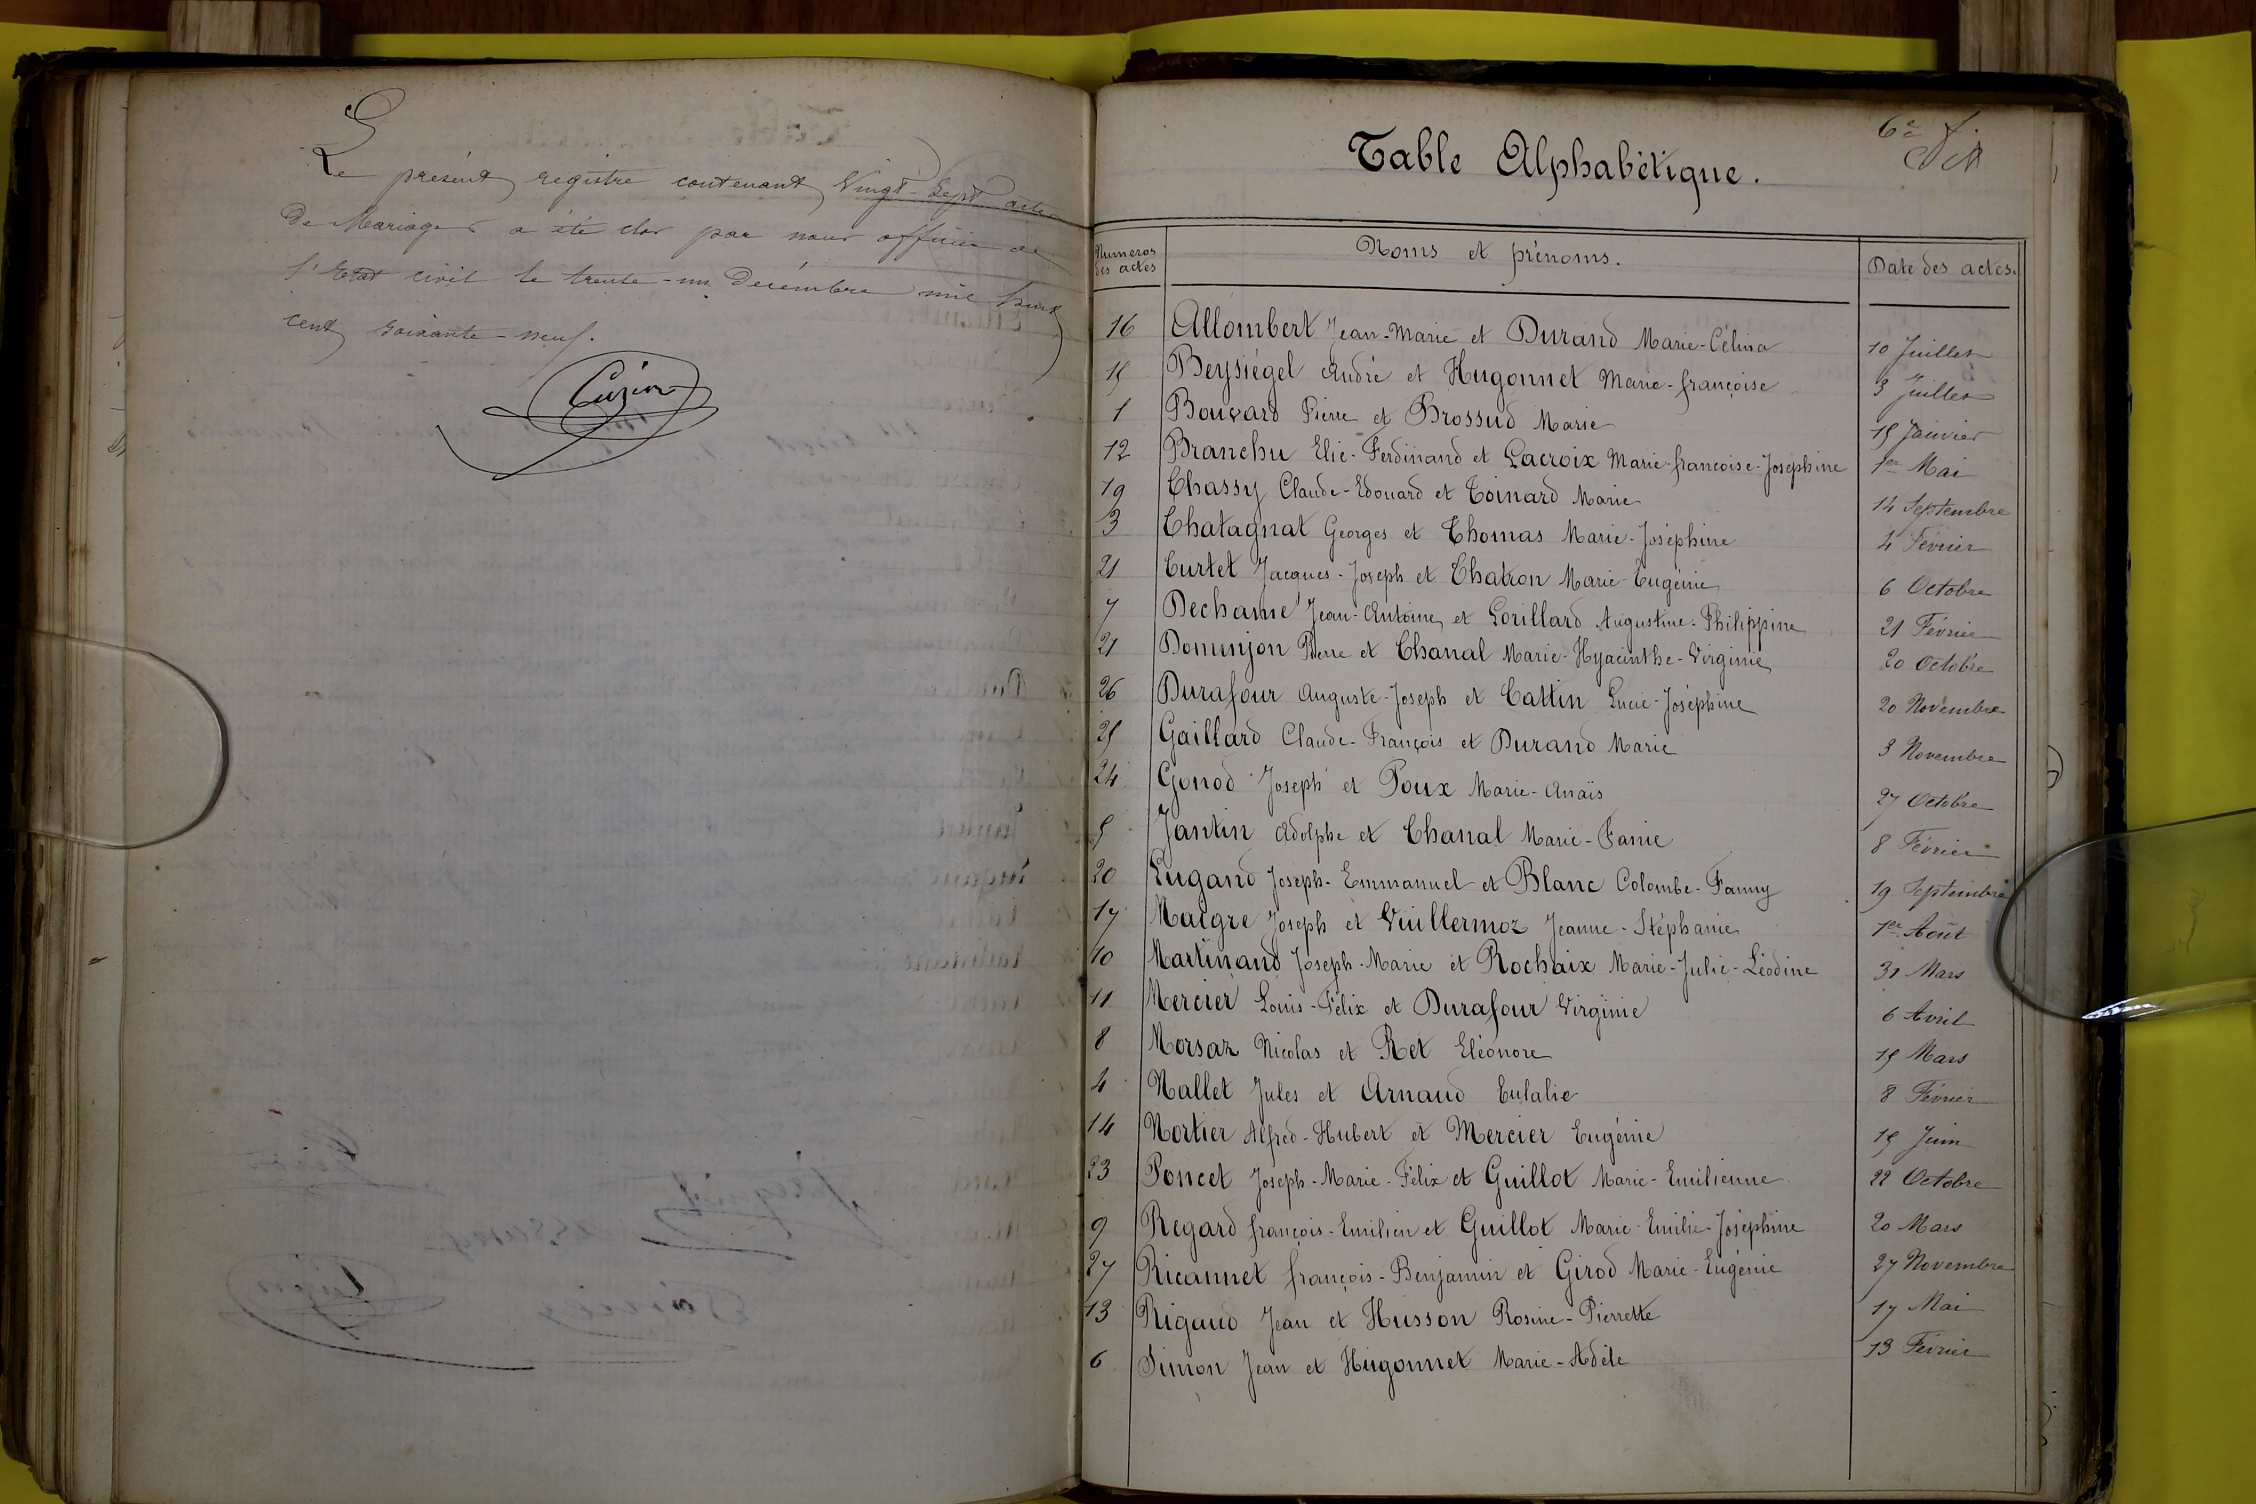 Le présent registre contenant Vingt-Sept actes
de Mariages a été clos par nous officier de
l'Etat civil le trente-un Decémbre mil huit
cent soixante-neuf.
Cuzin
6e f.
Table Alphabétique.
Numeros des actes Noms et prénoms. Date des actes.
16 Allombert Jean-Marie et Durand Marie-Célina 10 Juillet
15 Beysiégel André et Hugonnet Marie-françoise 3 Juillet
1 Bouvard Pierre et Brossud Marie 15 Janvier
12 Branchu Elie-Ferdinand et Lacroix Marie-françoise-Joséphine 1er Mai
19 Chassy Claude-Edouard et Toinard Marie 14 Septembre
3 Chatagnat Georges et Thomas Marie-Joséphine 4 Février
21 Curtet Jacques-Joseph et Chatron Marie-Eugénie 6 Octobre
7 Dechamé Jean-Antoine et Lorillard Augustine-Philippine 21 Février
21 Dominjon Pierre et Chanal Marie-Hyacinthe-Virginie 20 Octobre
26 Durafour Auguste-Joseph et Cattin Lucie-Joséphine 20 Novembre
25 Gaillard Claude-François et Durand Marie 3 Novembre
24 Gonod Joseph et Poux Marie-Anaïs 27 Octobre
5 Jantin Adolphe et Chanal Marie-Fanie 8 Février
20 Lugand Joseph-Emmanuel et Blanc Colombe-Fanny 19 Septembre
17 Maigre Joseph et Vuillermoz Jeanne-Stéphanie 1er Août
10 Martinand Joseph-Marie et Rochaix Marie-Julie-Léodine 31 Mars
11 Mercier Louis-Félix et Durafour Virginie 6 Avril
8 Morsaz Nicolas et Ret Eléonore 15 Mars
4 Nallet Jules et Arnaud Eulalie 8 Février
14 Nortier Alfred-Hubert et Mercier Eugénie 15 Juin
23 Poncet Joseph-Marie-Félix et Guillot Marie-Emilienne 22 Octobre
9 Regard françois-Emilien et Guillot Marie-Emilie-Joséphine 20 Mars
27 Ricannet françois-Benjamin et Girod Marie-Eugénie 27 Novembre
13 Rigaud Jean et Husson Rosine-Pierrette 17 Mai
6 Simon Jean et Hugonnet Marie-Adèle 13 Février